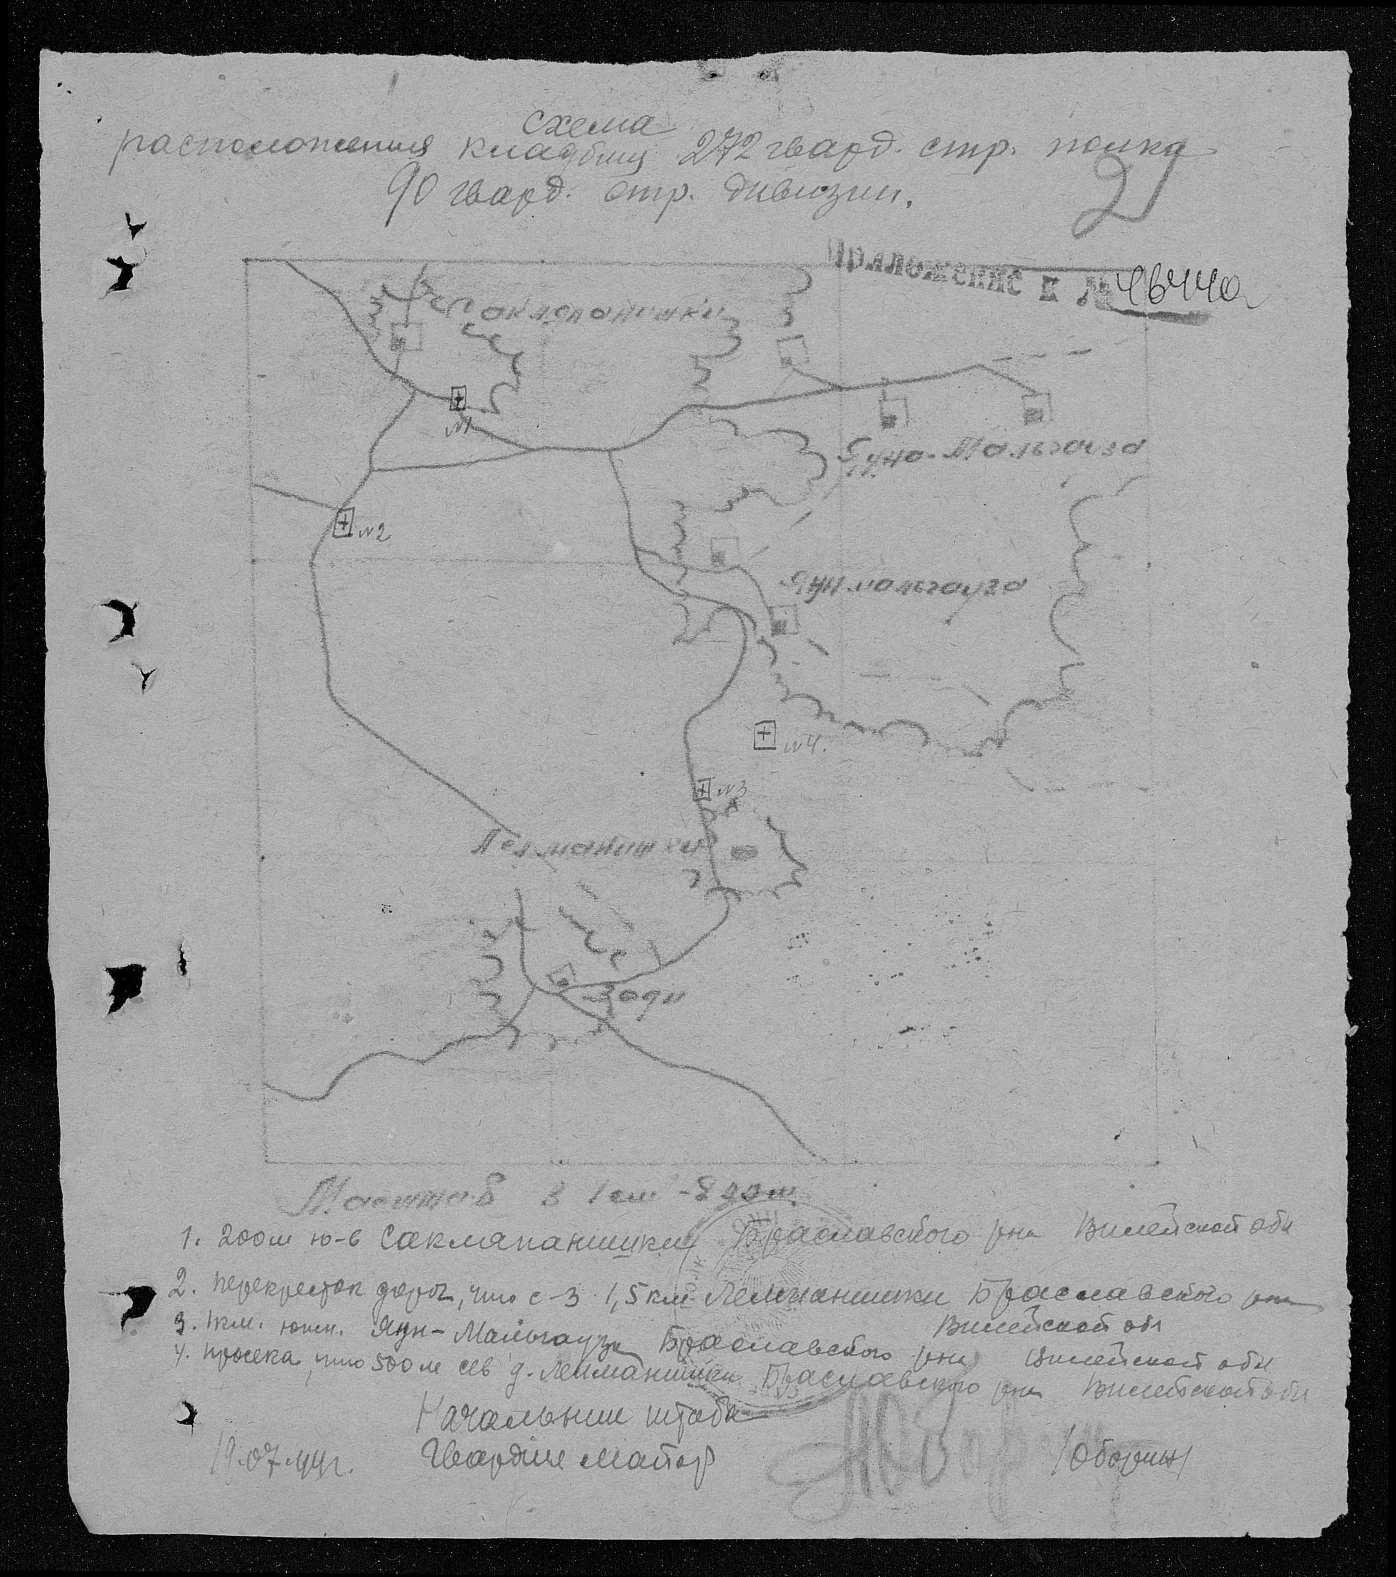 схема
расположения кладбищ 272 гвард. стр. полка
90 гвард. стр. дивизии.
2
Приложение к № 4644с
Сакляпанишки
№1
Яуно-Мальгауза
№2
Яунмальгауза
№4.
№3
Лейманишки
Зади
Маштаб в 1 см - 200 м.
1. 200 м ю-в Сакляпанишки Браславского рна Вилейской обл
2. перекресток дорог, что с-з 1,5 км Лейманишки Браславского рна
Вилейской обл
3. 1 км. южн. Яун-Мальгауза Браславского рна Вилейской обл
4. просека, что 500 м сев д. Лейманишки Браславского рна Вилейской обл
Начальник штаба
19.07.44г. Гвардии майор /Оборин/